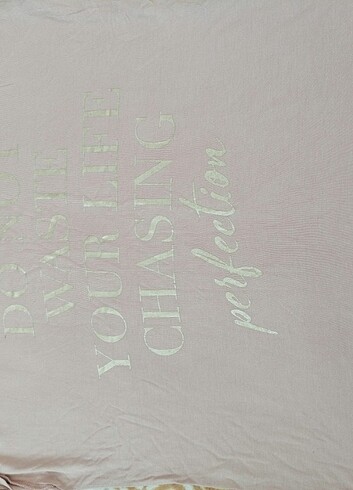 DO NOT
WASTE
YOUR LIFE
CHASING
perfection